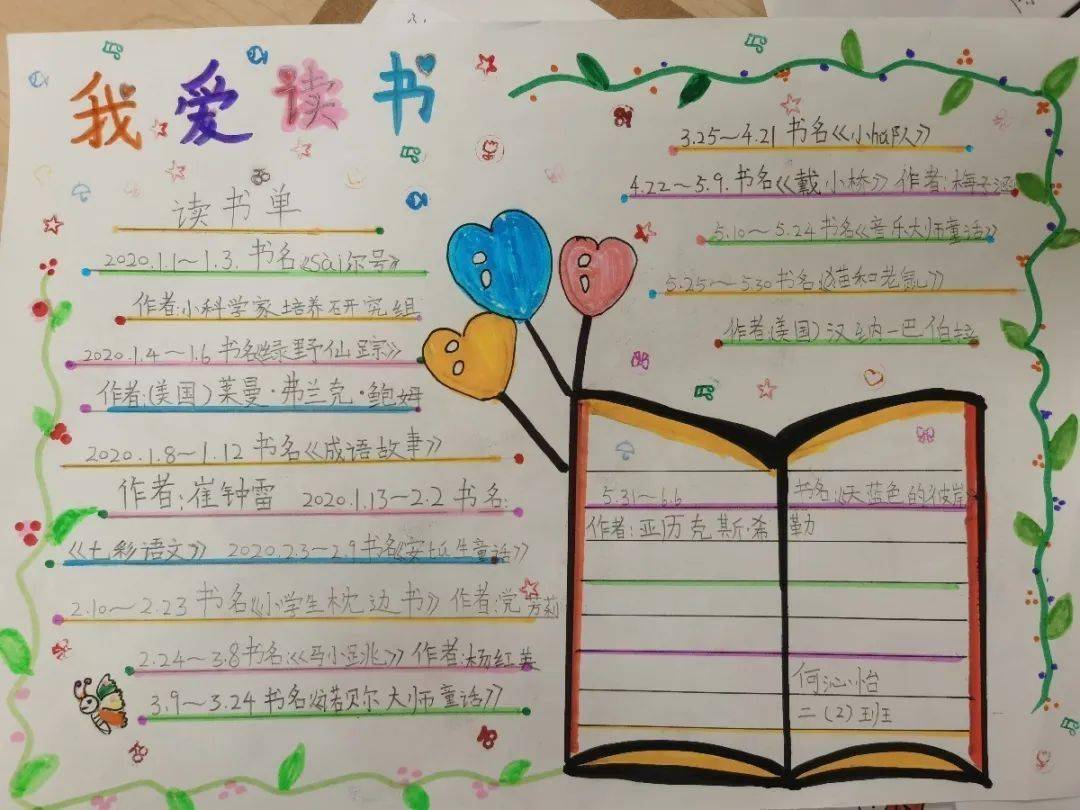 我爱读书
读书单
2020.1.1～1.3. 书名《Sài尔号》
作者:小科学家培养研究组
2020.1.4～1.6 书名《绿野仙踪》
作者:(美国)莱曼·弗兰克·鲍姆
2020.1.8～1.12 书名《成语故事》
作者:崔钟雷 2020.1.13～2.2 书名:
《七彩语文》 2020.2.3～2.9书名《安tú生童话》
2.10～2.23 书名《小学生枕边书》作者:党芳莉
2.24～3.8书名:《马小跳》作者:杨红美
3.9～3.24 书名《诺贝尔大师童话》
3.25～4.21 书名《小há队》
4.22～5.9.书名《戴小桥》作者:梅子涵
5.10～5.24书名《音乐大师童话》
5.25～5.30书名:《猫和老鼠》
作者(美国)汉纳一巴伯
5.31～6.6 书名:《天蓝色的彼岸》
作者:亚历克斯·希勒
何沁怡
二(2)班